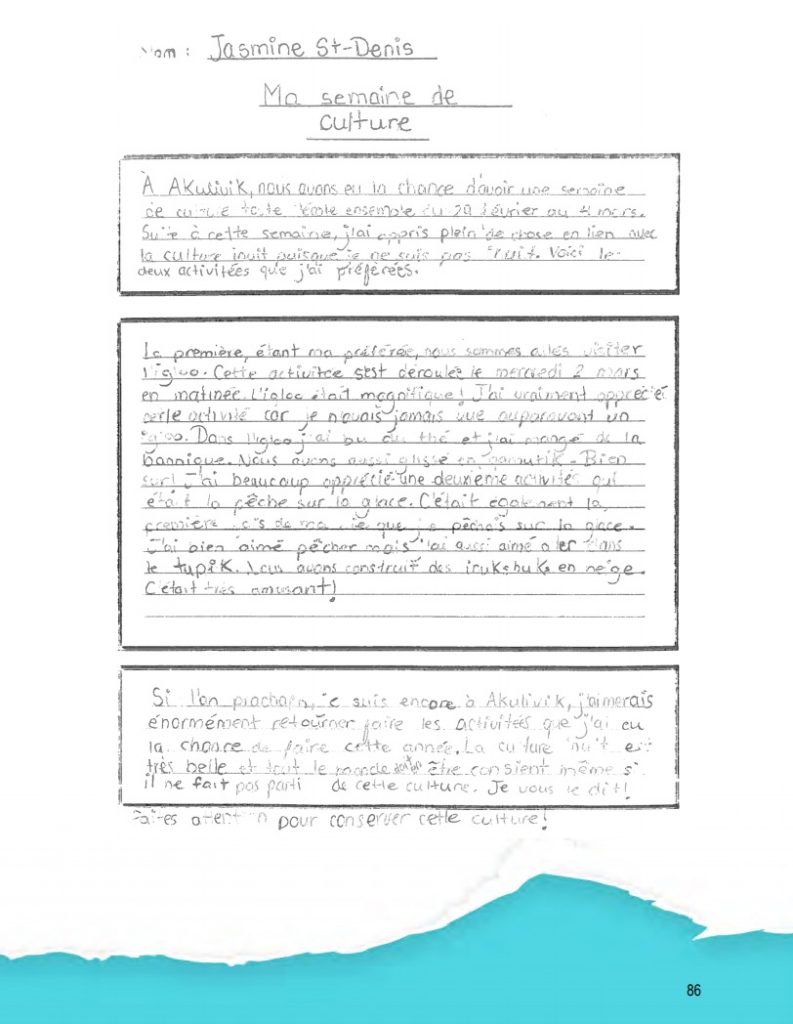 Nom : Jasmine St-Denis
Ma semaine de
culture
À Akulivik, nous avons eu la chance d'avoir une semaine
de culture toute l'école ensemble du 29 février au 4 mars.
Suite à cette semaine, j'ai appris plein de chose en lien avec
la culture inuit puisque je ne suis pas inuit. Voici les
deux activitées que j'ai préférées.
La première, étant ma préférée, nous sommes allés visiter
l'igloo. Cette activitée s'est déroulée le mercredi 2 mars
en matinée. L'igloo était magnifique! J'ai vraiment apprécié
cette activité car je n'avais jamais vue auparavant un
igloo. Dans l'igloo j'ai bu du thé et j'ai mangé de la
bannique. Nous avons aussi glissé en qamutik. Bien
sur! J'ai beaucoup apprécié une deuxième activités qui
était la pêche sur la glace. C'était également la
première fois de ma vie que je pêchais sur la glace.
J'ai bien aimé pêcher mais j'ai aussi aimé aller dans
le tupik. Nous avons construit des inukshuks en neige.
C'était très amusant!
Si l'an prochain, je suis encore à Akulivik, j'aimerais
énormément retourner faire les activitées que j'ai eu
la chance de faire cette année. La culture inuit est
très belle et tout le monde être consient même si
il ne fait pas parti de cette culture. Je vous le dit!
Faites attention pour conserver cette culture!
86